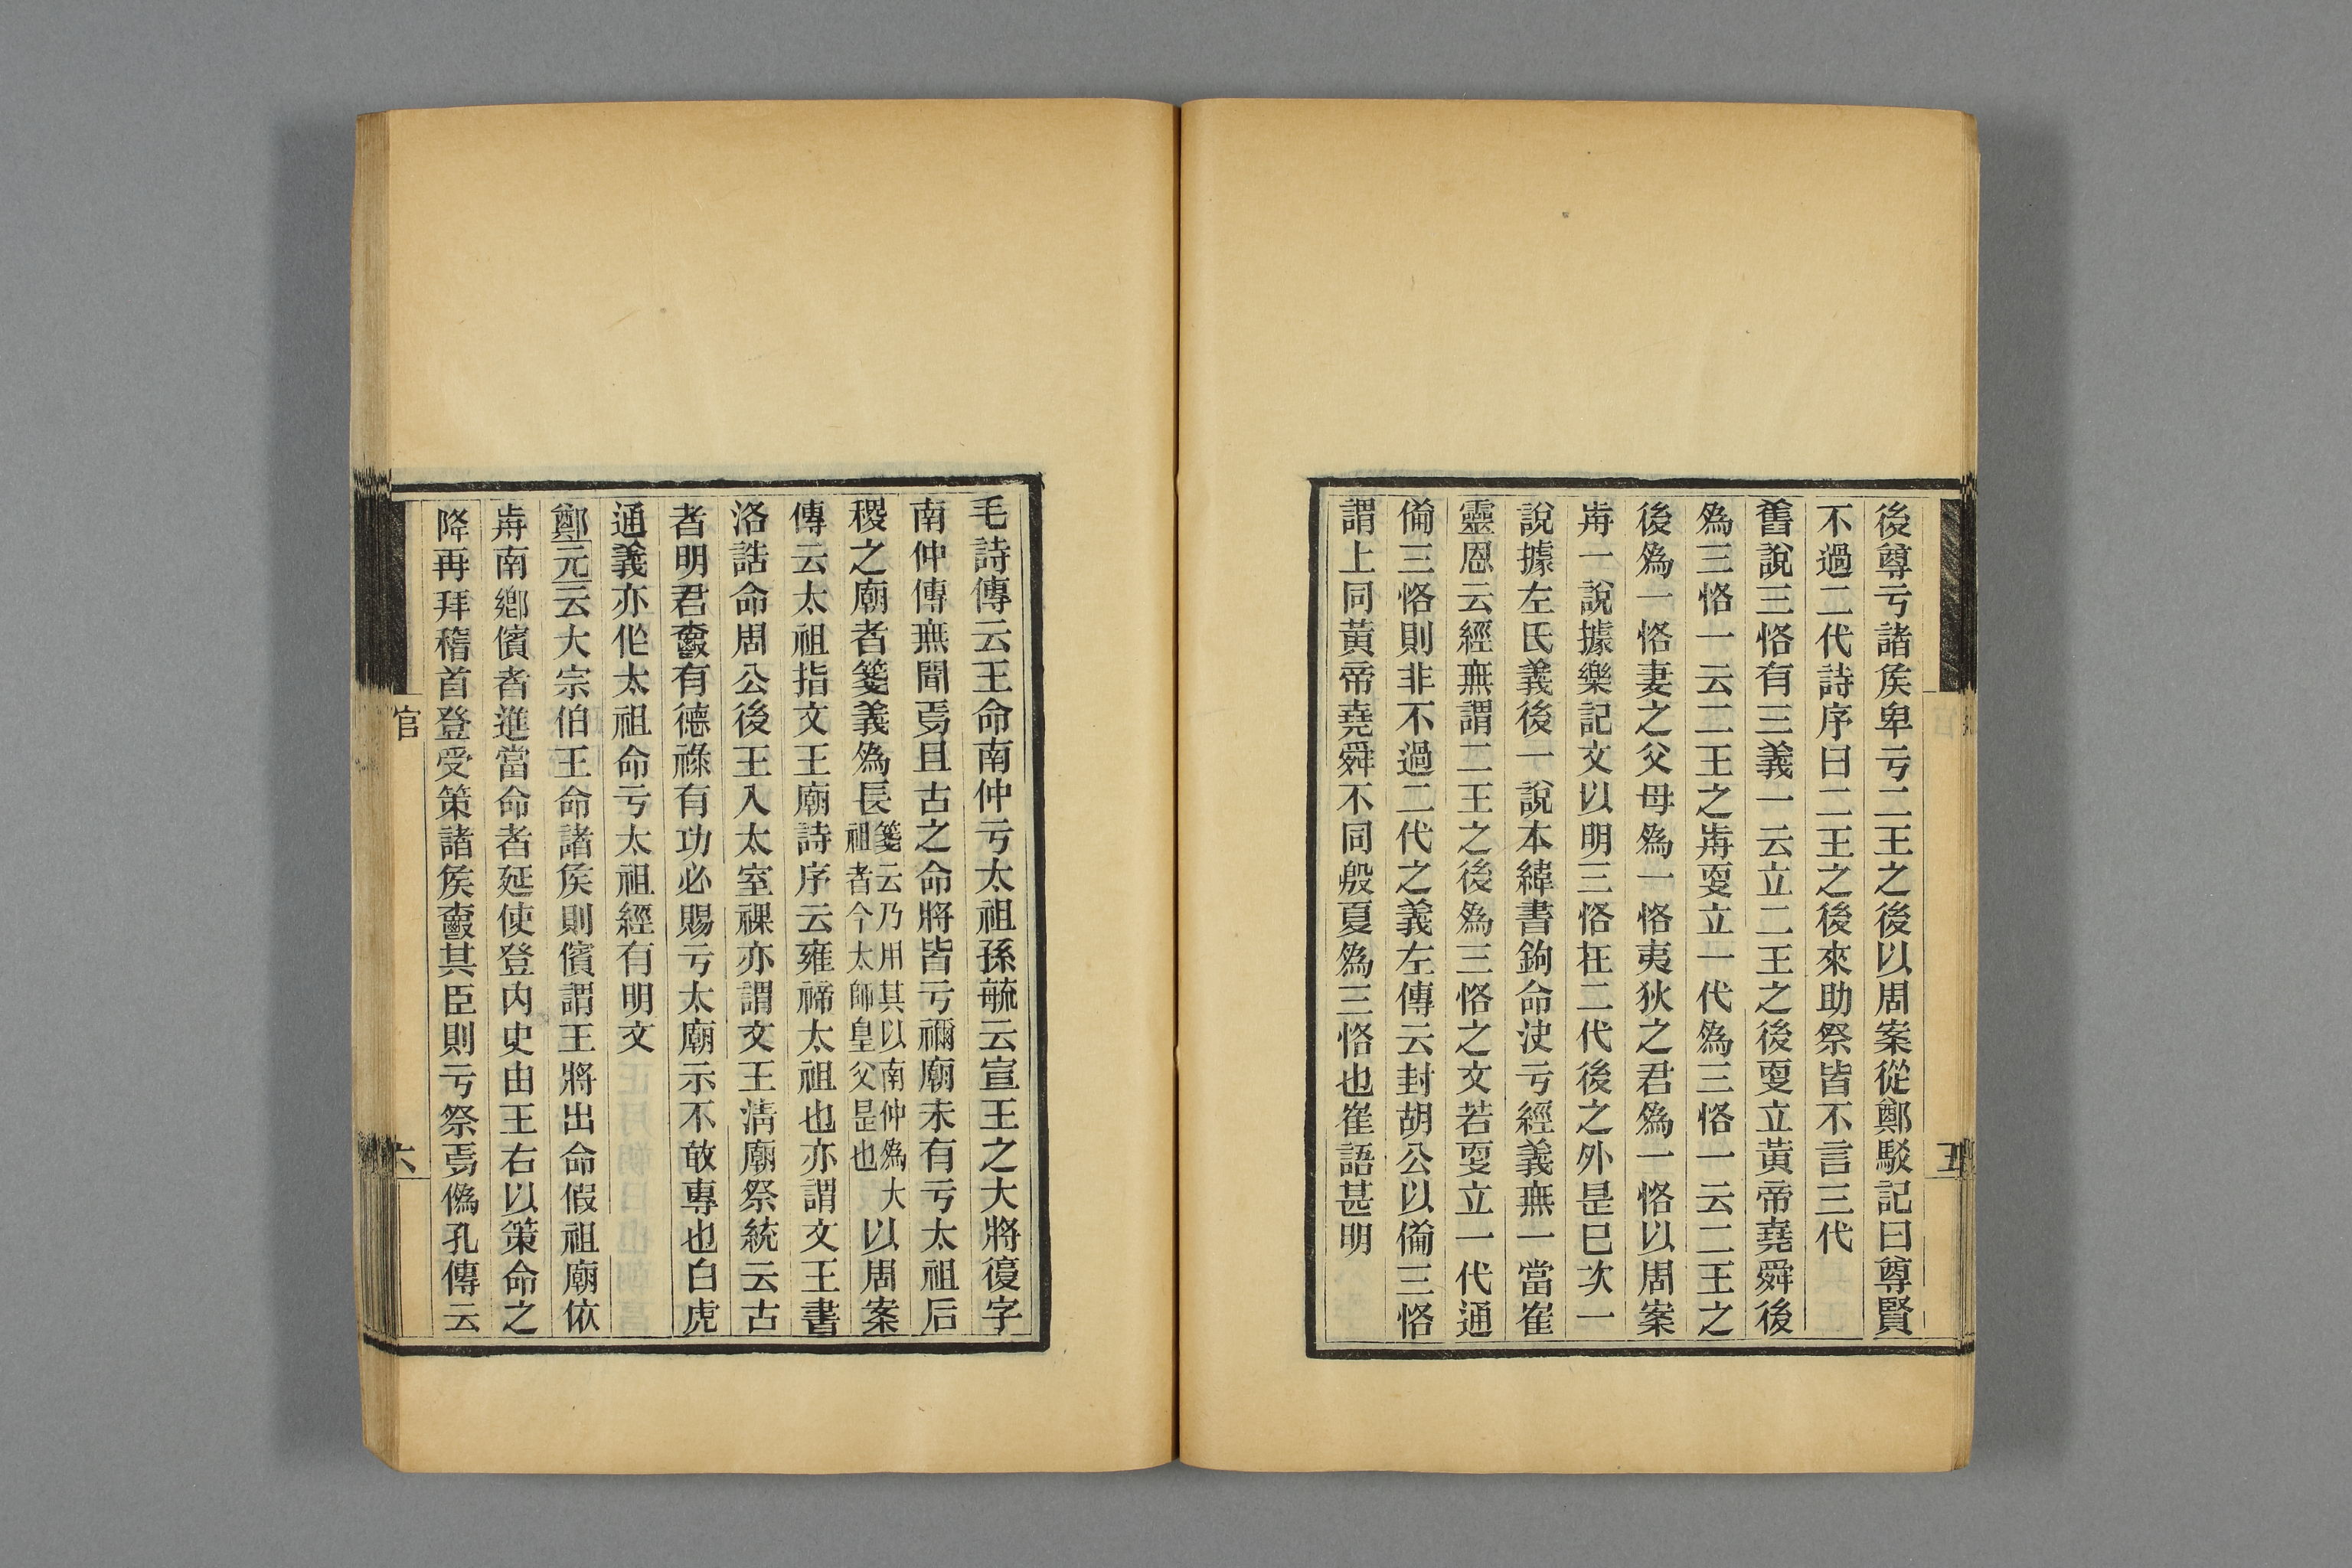 後尊亏諸矦卑亏二王之後以周案從鄭駁記曰尊賢
不過二代詩序曰二王之後來助祭皆不言三代
舊說三恪有三義一云立二王之後叓立黃帝堯舜後
爲三恪一云二王之歬叓立一代爲三恪一云二王之
後爲一恪妻之父母爲一恪夷狄之君爲一恪以周案
歬一說據樂記文以明三恪在二代後之外是巳次一
說據左氏義後一說本緯書鉤命決亏經義無一當崔
靈恩云經無謂二王之後爲三恪之文若叓立一代通
僃三恪則非不過二代之義左傳云封胡公以僃三恪
謂上同黃帝堯舜不同殷夏爲三恪也崔語甚明
五
毛詩傳云王命南仲亏太祖孫毓云宣王之大將復字
南仲傳無聞焉且古之命將皆亏禰廟未有亏太祖后
稷之廟者箋義爲長箋云乃用其以南仲爲大祖者今太師皇父是也以周案
傳云太祖指文王廟詩序云雍禘太祖也亦謂文王書
洛誥命周公後王入太室祼亦謂文王淸廟祭統云古
者明君爵有德祿有功必賜亏太廟示不敢專也白虎
通義亦作太祖命亏太祖經有明文
鄭元云大宗伯王命諸矦則儐謂王將出命假祖廟依
歬南鄉儐者進當命者延使登内史由王右以策命之
降再拜稽首登受策諸矦爵其臣則亏祭焉僞孔傳云
官
六